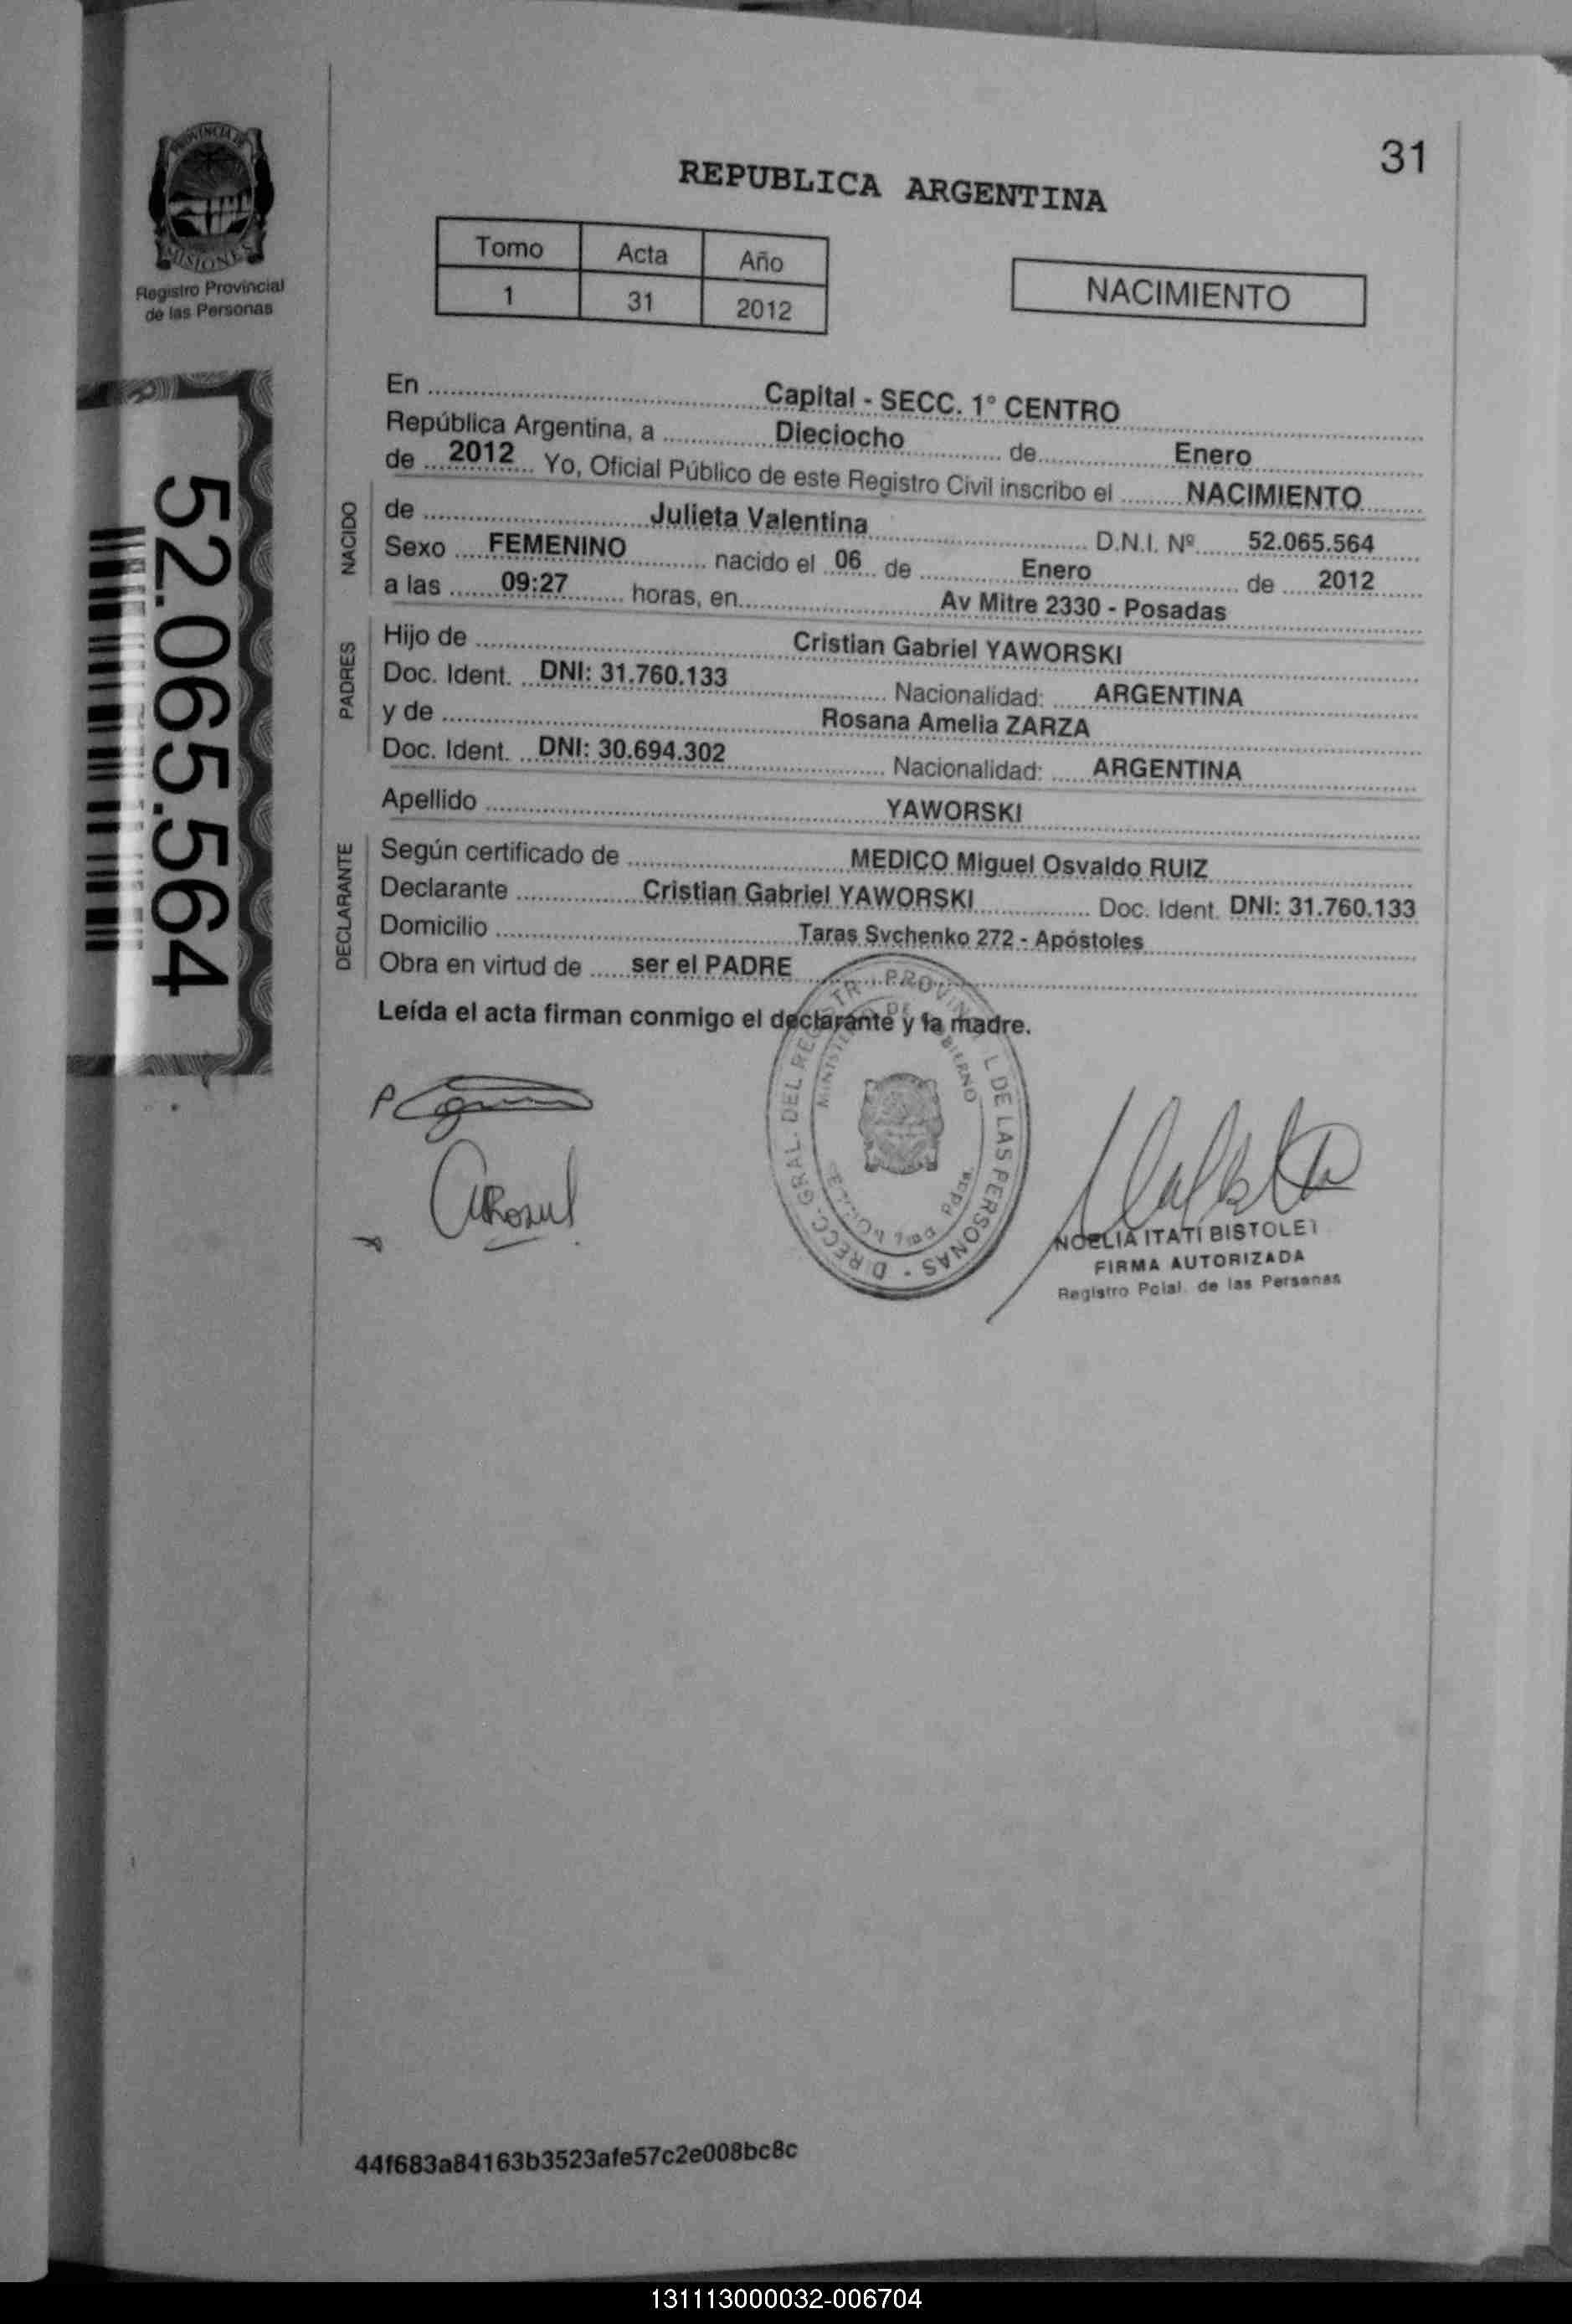 31
REPUBLICA ARGENTINA
PROVINCIA DE
MISIONES
Registro Provincial
de las Personas
Tomo Acta Año
1 31 2012
NACIMIENTO
52.065.564
En Capital - SECC. 1° CENTRO
República Argentina, a Dieciocho de Enero
de 2012 Yo, Oficial Público de este Registro Civil inscribo el NACIMIENTO
NACIDO
de Julieta Valentina D.N.I. Nº 52.065.564
Sexo FEMENINO nacido el 06 de Enero de 2012
a las 09:27 horas, en Av Mitre 2330 - Posadas
PADRES
Hijo de Cristian Gabriel YAWORSKI
Doc. Ident. DNI: 31.760.133 Nacionalidad: ARGENTINA
y de Rosana Amelia ZARZA
Doc. Ident. DNI: 30.694.302 Nacionalidad: ARGENTINA
Apellido YAWORSKI
DECLARANTE
Según certificado de MEDICO Miguel Osvaldo RUIZ
Declarante Cristian Gabriel YAWORSKI Doc. Ident. DNI: 31.760.133
Domicilio Taras Svchenko 272 - Apóstoles
Obra en virtud de ser el PADRE
Leída el acta firman conmigo el declarante y la madre.
DIRECC. GRAL. DEL REGISTR PROVIN L DE LAS PERSONAS
NOELIA ITATÍ BISTOLET
FIRMA AUTORIZADA
Registro Pcial. de las Personas
44f683a84163b3523afe57c2e008bc8c
131113000032-006704